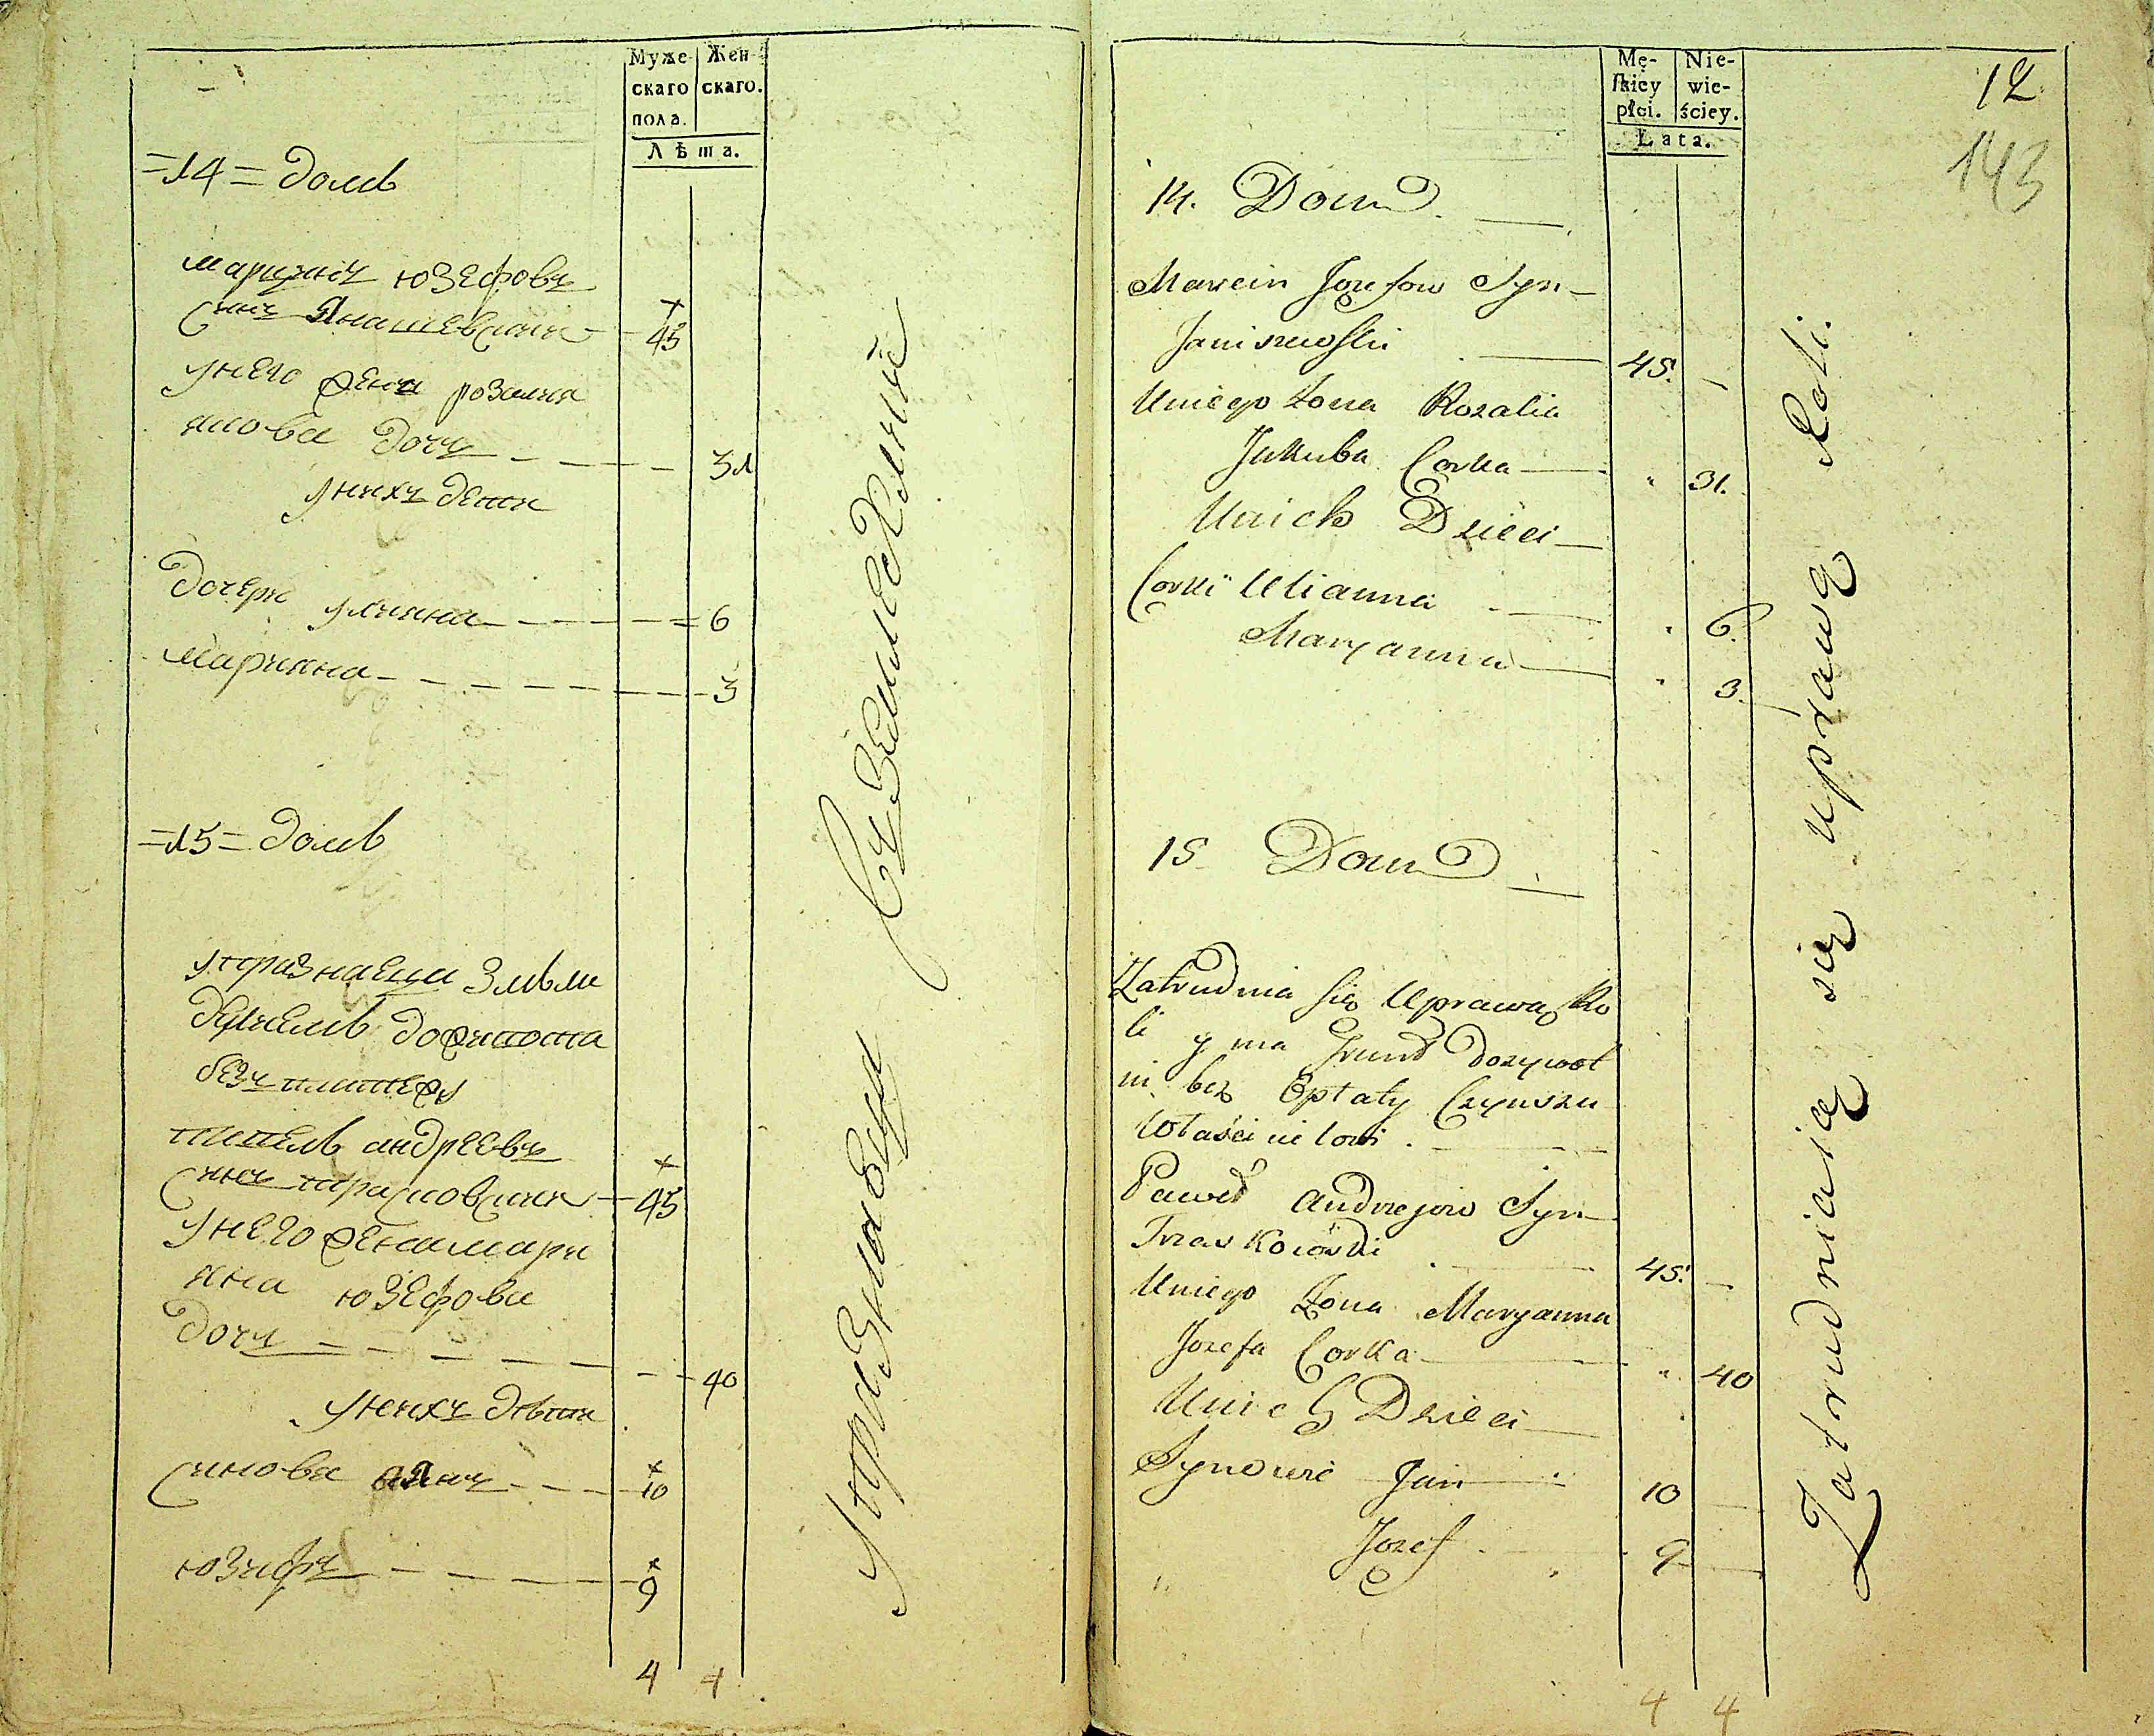 Муже- скаго пола.
Жен- скаго.
Лѣта.
=14= домъ
марцинъ юзефовъ
синъ Янашевский 45
унего жена розалия
якова дочъ 31
унихъ дети
дочери улияна 6
марияна 3
=15= домъ
безъ
павелъ андреевъ
синъ 45
унего жена мари
яна юзефова
дочъ 40
унихъ дѣти
синовя Янъ 10
юзифъ 9
4 4
Mę- skiey płci.
Nie- wie- ściey.
Łata.
12
143
14. Dom
Marcin Jozefow Syn
Janiszewski 45.
Uniego Zona Rozalia
Jakuba Corka 31.
Unich Dzieci
Corki Ulianna 6.
Maryanna 3.
15 Dom
Zatrudnia się Uprawą Ro
li y ma Grunt Dozywot
ni bez Opłaty Czynszu
Właścicielowi.
Paweł Andrzejow Syn
Traskowski 45.
Uniego Zona Maryanna
Jozefa Corka 40
Unich Dzieci
Synowie Jan 10
Jozef 9
4 4
Zatrudniaią się uprawą Roli.